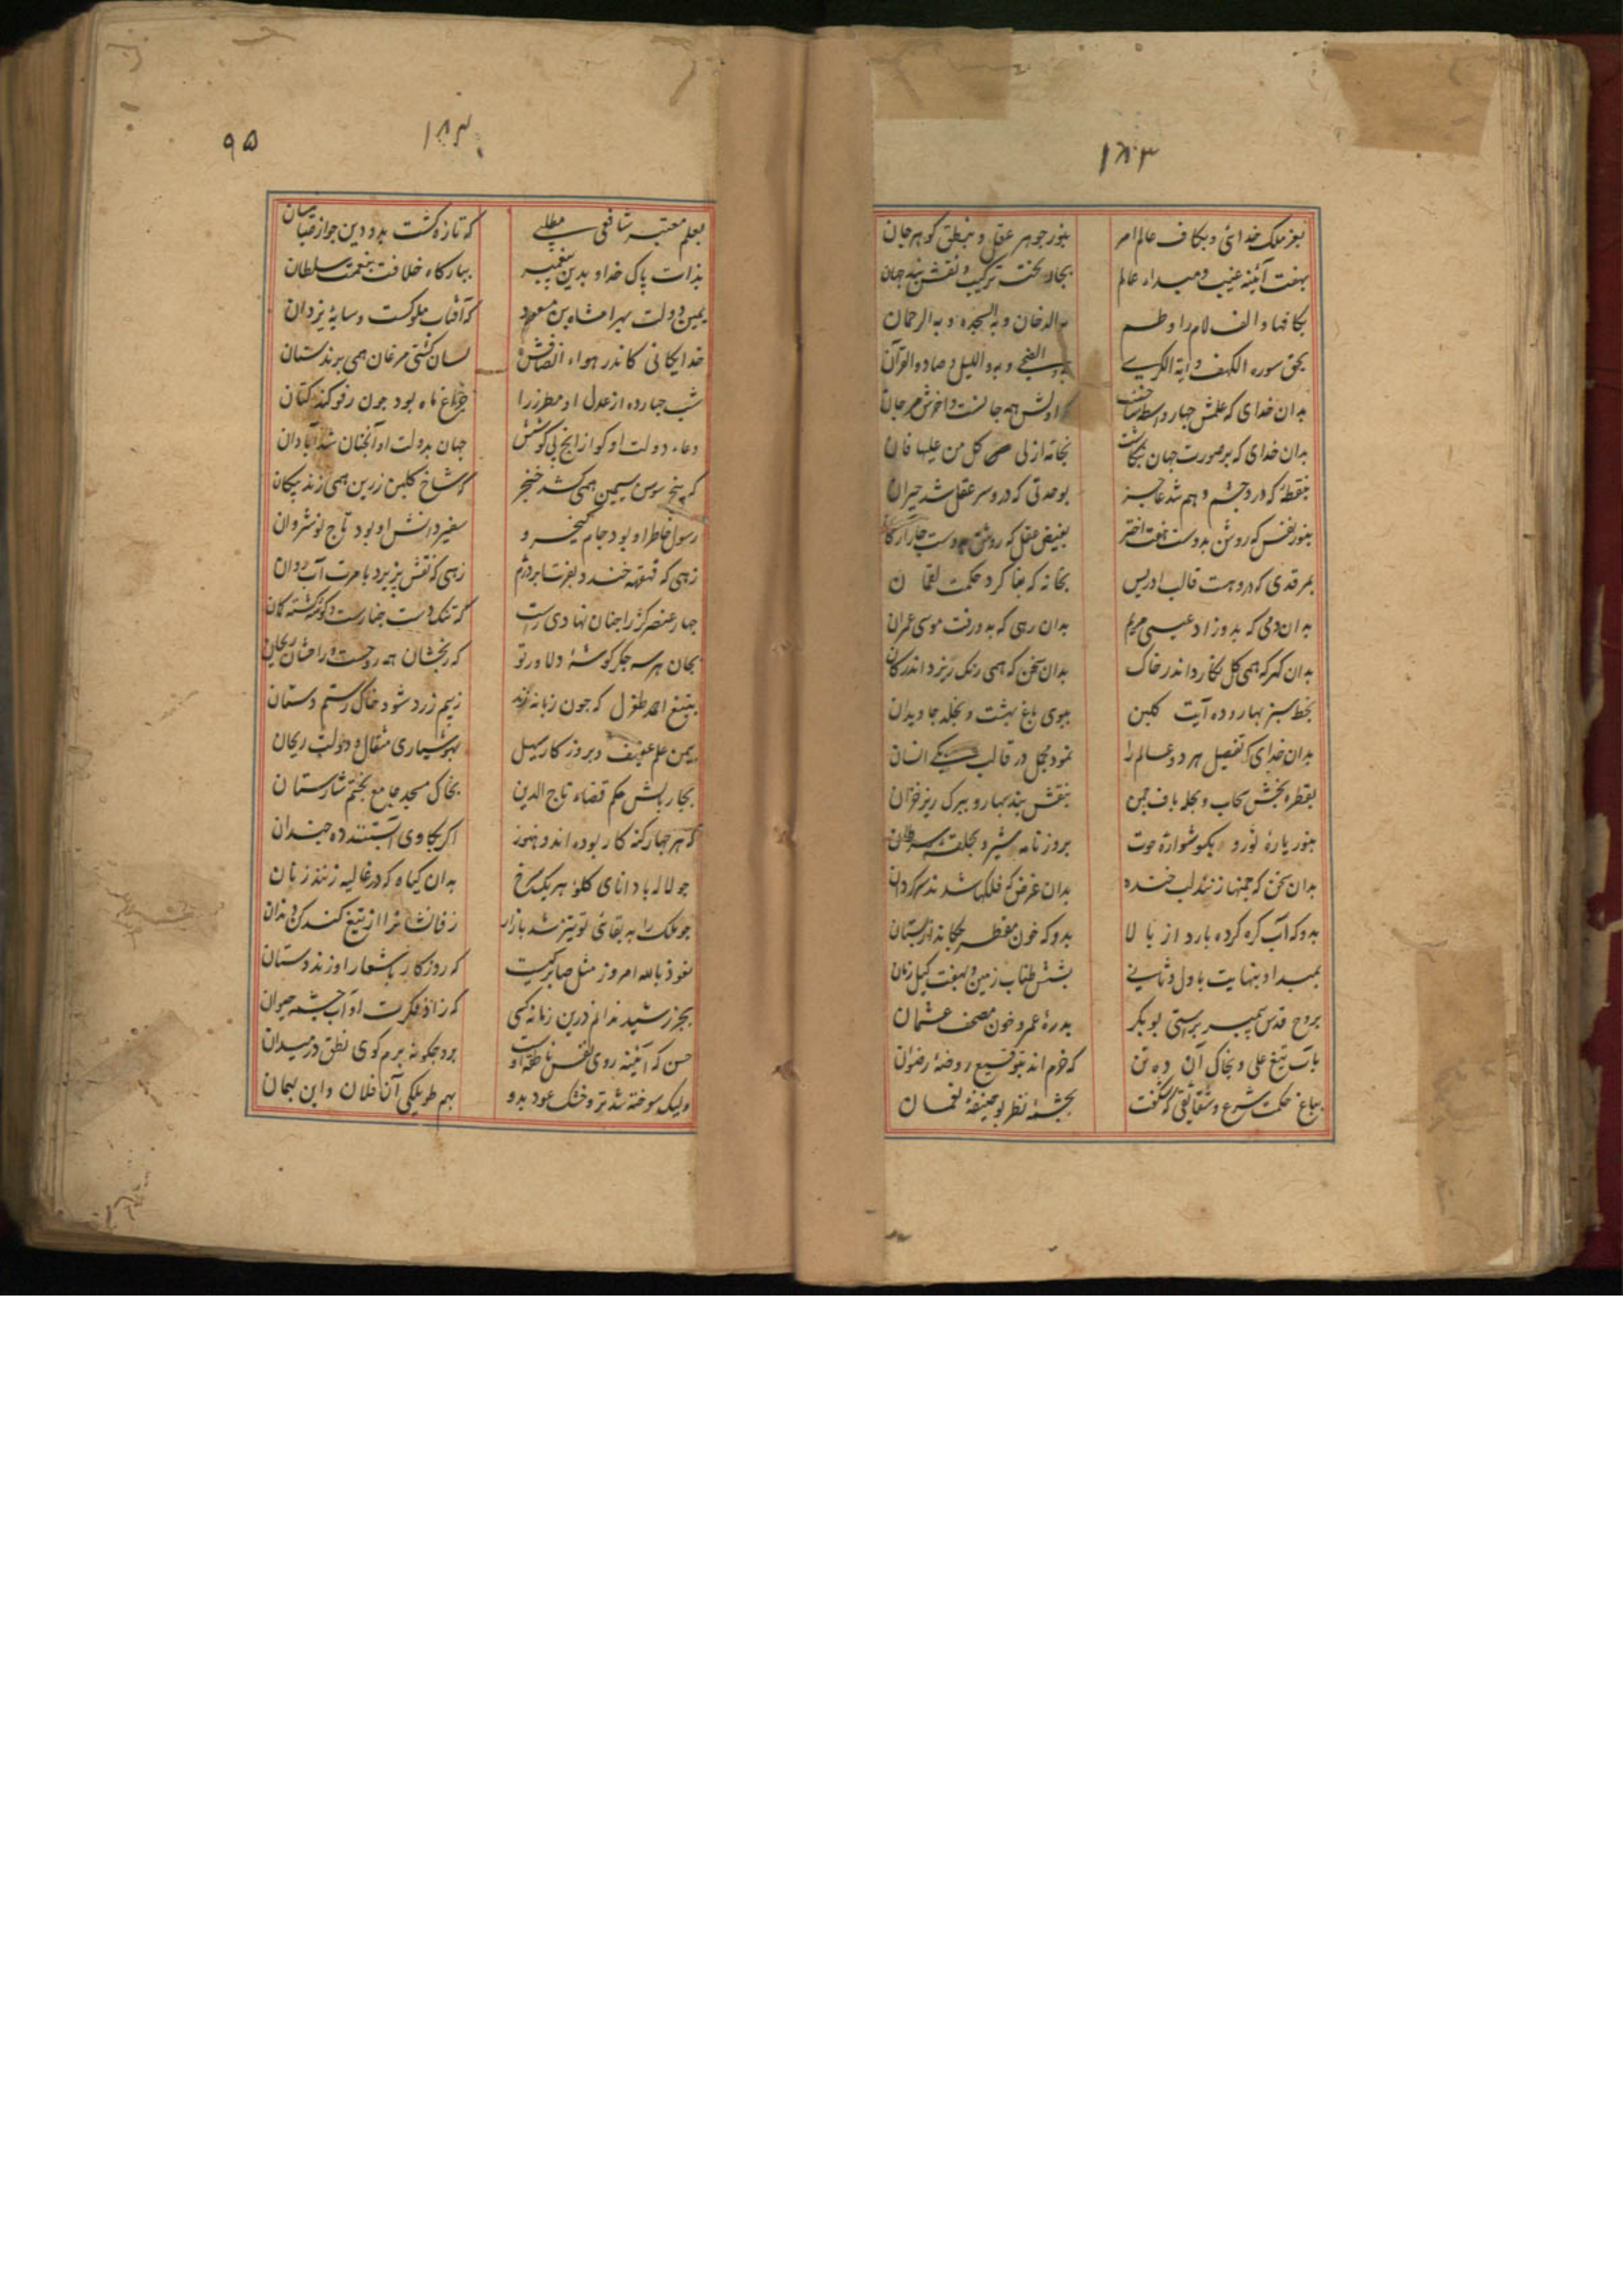 ۱۸۳
بعز ملک خدائی و بکاف عالم امر
بنور جوهر عقل و بنطق گوهر جان
بهفت آئینه غیب و مبداء عالم
بچار تخت ترکیب و نقش بند جهان
بکافها و الف لام را و طسم
به الدخان و به السجده و به الرحمان
بحق سوره الکهف و آیة الکرسی
والضحی و به واللیل و صاد والقرآن
بدان خدای که علمش چهار
بدان خدای که بر صورت جهان
کل من علیها فان
بنقطهٔ که در و چشم وهم شد عاجز
بوحدتی که درو سر عقل شد حیران
بنور نفس که روشن بدوست هفت اختر
بفیض عقل که روشن
بمرقدی که درو هست قالب ادریس
بخانه که بنا کرد حکمت لقمان
بدان دمی که بدو زاد عیسی مریم
بدان رهی که بدو رفت موسی عمران
بدان گهر که همی گل نگارد اندر خاک
بدان سخن که همی رنک ریزد اندر کان
بخط سبز بهار و ده آیت گلبن
ببوی باغ بهشت و بخلد جاویدان
بدان خدای که تفصیل هر دو عالم را
نمود مجمل در قالب یکی انسان
بقطره بخش سحاب و بحله باف چمن
بنقش بند بهار و ببرک ریز خزان
بنور پارهٔ ثور و بگوشوارهٔ حوت
بروزنامه شیر و بحلقه سرطان
بدان سخن که چمنها زنند لب خنده
بدان غرض که فلکها شدند سرگردان
بدو که آب گره کرده بارد از بالا
بدو که خون مقطر چکاند از پستان
بمبداء و بنهایت باول و ثانی
بشش طناب زمین و بهفت کیل زمان
بروح قدس پیمبر براستی بوبکر
بدرهٔ عمر و خون مصحف عثمان
بآب تیغ علی و بخاک آن ده تن
که خرم اند بتوقیع روضهٔ رضوان
بباغ حکمت شرع و شقائقی که شگفت
بچشمهٔ نظر بوحنیفهٔ نعمان
۹۵
۱۸۴
بعلم معتبر شافعی مطلبی
که تازه گشت بدو دین
بذات پاک خدا و بدین پیغمبر
ببارگاه خلافت بنعمت سلطان
یمین دولت بهرامشاه بن مسعود
که آفتاب ملوکست و سایهٔ یزدان
خدایگانی کاندر هواء انصافش
لسان کشتی مرغان همی برند ستان
شب چهارده از عدل او مطرز را
چراغ ماه بود چون رفو کند کتان
دعاء دولت او
جهان بدولت او آنچنان شد آبادان
که پنج سوسن سیمین همی کشد خنجر
که شاخ گلبن زرین همی زند پیکان
رسول خاطر او بود جام کیخسرو
سفیر دانش او بود تاج نوشروان
زهی که قهقهه خندد بعزت ابر درم
زهی که نقش پذیرد بامرت آب روان
چهار عنصر کژ را چنان نهادی راست
بجان هر سه جگر گوشهٔ دلاور تو
بتیغ احمد طغرل که چون زبانه زند
ز بیم زرد شود خال رستم دستان
بیمن علم عفیف و بروزگار سهیل
بهوشیاری مثقال و دولت ریحان
بچار بالش حکم قضاء تاج الدین
بخاک مسجد جامع بختم شارستان
که هر چهار کنه کار بوده اند و هنوز
اگر بکاوی آبستنند ده چندان
چو لاله باد انای گلو هر یک سرخ
بدان گیاه که در غالیه زنند زبان
چو ملک را به بقای تو تیز شد بازار
ز قانشا را از تیغ کند کن دندان
نعوذ بالله امروز مثل صابر کیست
که روزگار باشعار او زند دستان
بجز رشید ندانم درین زمانه کسی
که زاد فکرت او آب چشمه حیوان
حسن که آئینه روی نفس ناطقه اوست
برد چگونه برم گوی نطق در میدان
ولیک سوخته شد تر و خشک عود بدو
بهم طویلکی آن فلان و این بهمان